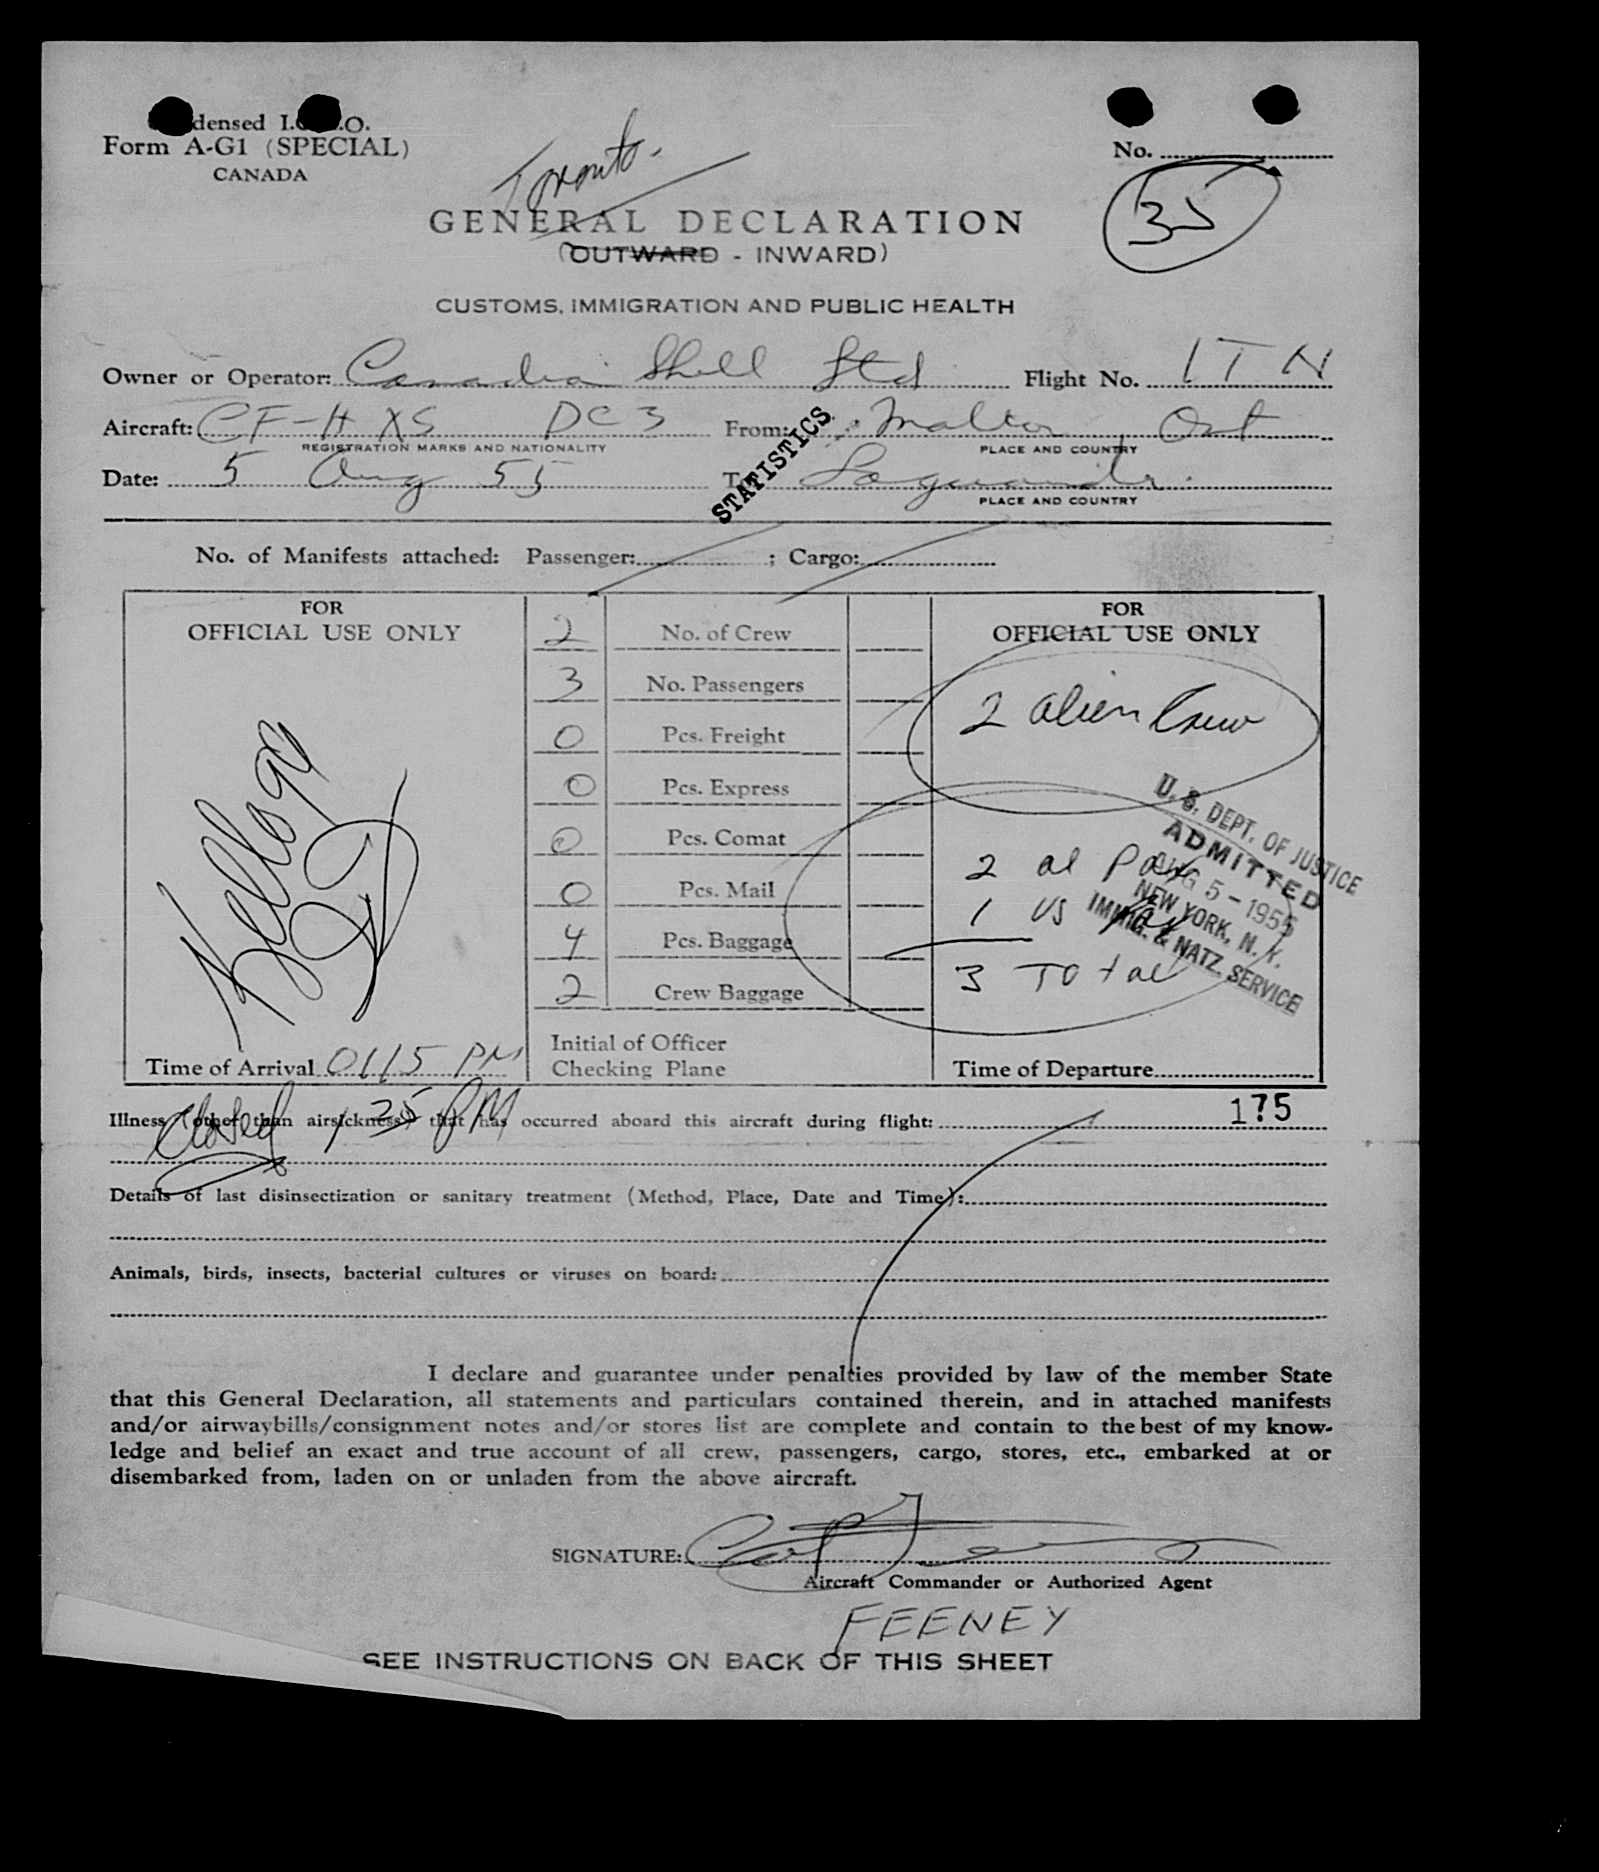 densed I.C.A.O.
Form A-G1 (SPECIAL)
CANADA
No.
35
Toronto
GENERAL DECLARATION
(OUTWARD - INWARD)
CUSTOMS, IMMIGRATION AND PUBLIC HEALTH
Owner or Operator: Canadian Shell Ltd Flight No. ITN
Aircraft: CF-HXS DC3 From: Malton Ont
REGISTRATION MARKS AND NATIONALITY PLACE AND COUNTRY
STATISTICS
Date: 5 Aug 55 To: Laguardia
PLACE AND COUNTRY
No. of Manifests attached: Passenger: ; Cargo:
FOR
OFFICIAL USE ONLY
Kellogg
Time of Arrival 0115 PM
2 No. of Crew
3 No. Passengers
0 Pcs. Freight
0 Pcs. Express
0 Pcs. Comat
0 Pcs. Mail
4 Pcs. Baggage
2 Crew Baggage
Initial of Officer
Checking Plane
FOR
OFFICIAL USE ONLY
2 alien Crew
2 al Pax
1 US Pax
3 Total
U. S. DEPT. OF JUSTICE
ADMITTED
AUG 5 - 1955
NEW YORK, N. Y.
IMMIG. & NATZ. SERVICE
Time of Departure
Closed 1 25 PM
175
Illness (other than airsickness) that has occurred aboard this aircraft during flight:
Details of last disinsectization or sanitary treatment (Method, Place, Date and Time):
Animals, birds, insects, bacterial cultures or viruses on board:
I declare and guarantee under penalties provided by law of the member State
that this General Declaration, all statements and particulars contained therein, and in attached manifests
and/or airwaybills/consignment notes and/or stores list are complete and contain to the best of my know-
ledge and belief an exact and true account of all crew, passengers, cargo, stores, etc., embarked at or
disembarked from, laden on or unladen from the above aircraft.
SIGNATURE:
Aircraft Commander or Authorized Agent
FEENEY
SEE INSTRUCTIONS ON BACK OF THIS SHEET